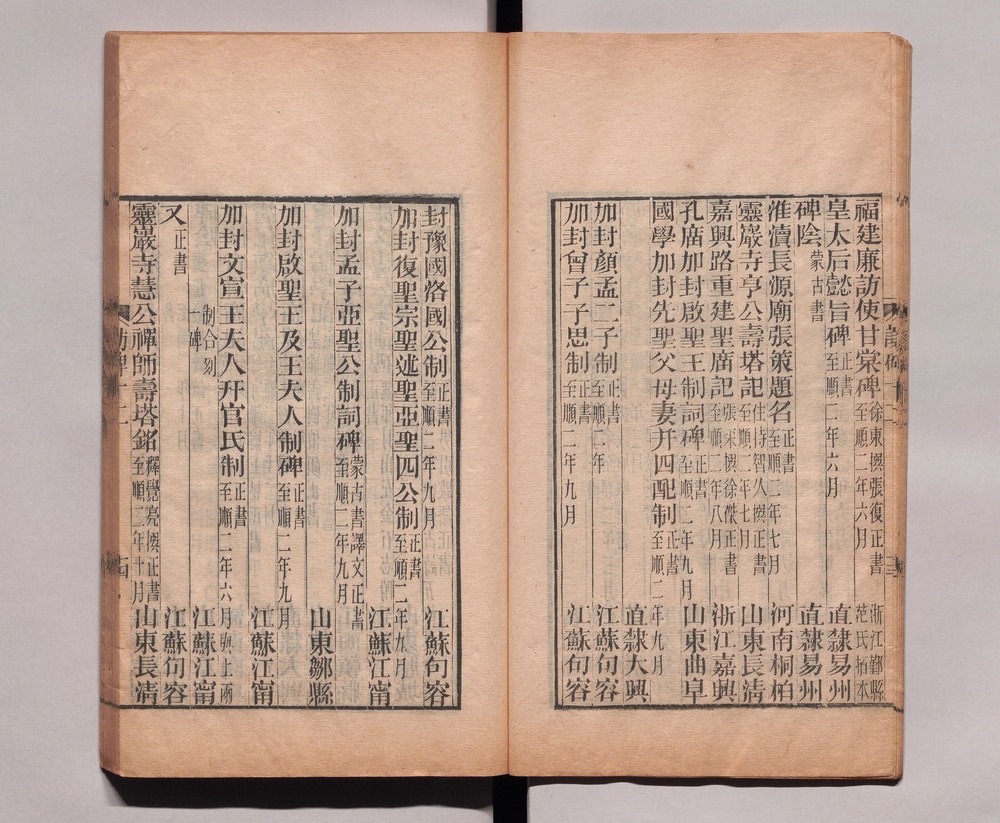 福建廉訪使甘棠碑 徐東撰張復正書 至順二年六月 浙江鄞縣 范氏拓本
皇太后懿旨碑 正書 至順二年六月 直隸易州
碑陰 蒙古書 直隸易州
淮瀆長源廟張策題名 正書 至順二年七月 河南桐柏
靈巖寺亨公壽塔記 住持智久撰正書 至順二年七月 山東長清
嘉興路重建聖廣記 張采撰徐傑正書 至順二年八月 浙江嘉興
孔廣加封啟聖王制詞碑 正書 至順二年九月 山東曲阜
國學加封先聖父母妻并四配制 正書 至順二年九月 直隸大興
加封顏孟二子制 正書 至順二年 江蘇句容
加封曾子子思制 正書 至順二年九月 江蘇句容
封豫國洛國公制 正書 至順二年九月 江蘇句容
加封復聖宗聖述聖亞聖四公制 正書 至順二年九月 江蘇江甯
加封孟子亞聖公制詞碑 蒙古書譯文正書 至順二年九月 山東鄒縣
加封啟聖王及王夫人制碑 正書 至順二年九月 江蘇江甯
加封文宣王夫人幵官氏制 正書 至順二年六月與上兩制合刻一碑 江蘇江甯
又 正書 江蘇句容
靈巖寺慧公禪師壽塔銘 釋覺亮撰正書 至順二年十月 山東長清
訪碑十二